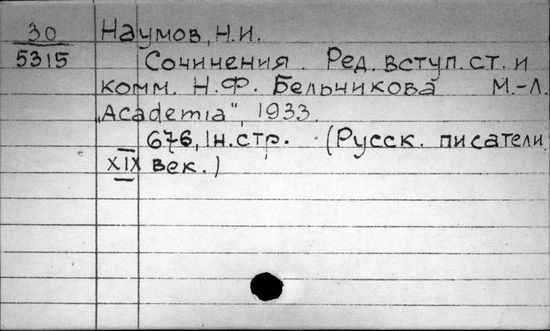 30 Наумов, Н.И.
5315 Сочинения. Ред. вступ. ст. и
комм. Н.Ф. Бельчикова М.-Л.
„Academia", 1933.
676, 1 н. стр. (Русск. писатели
XIX век.)